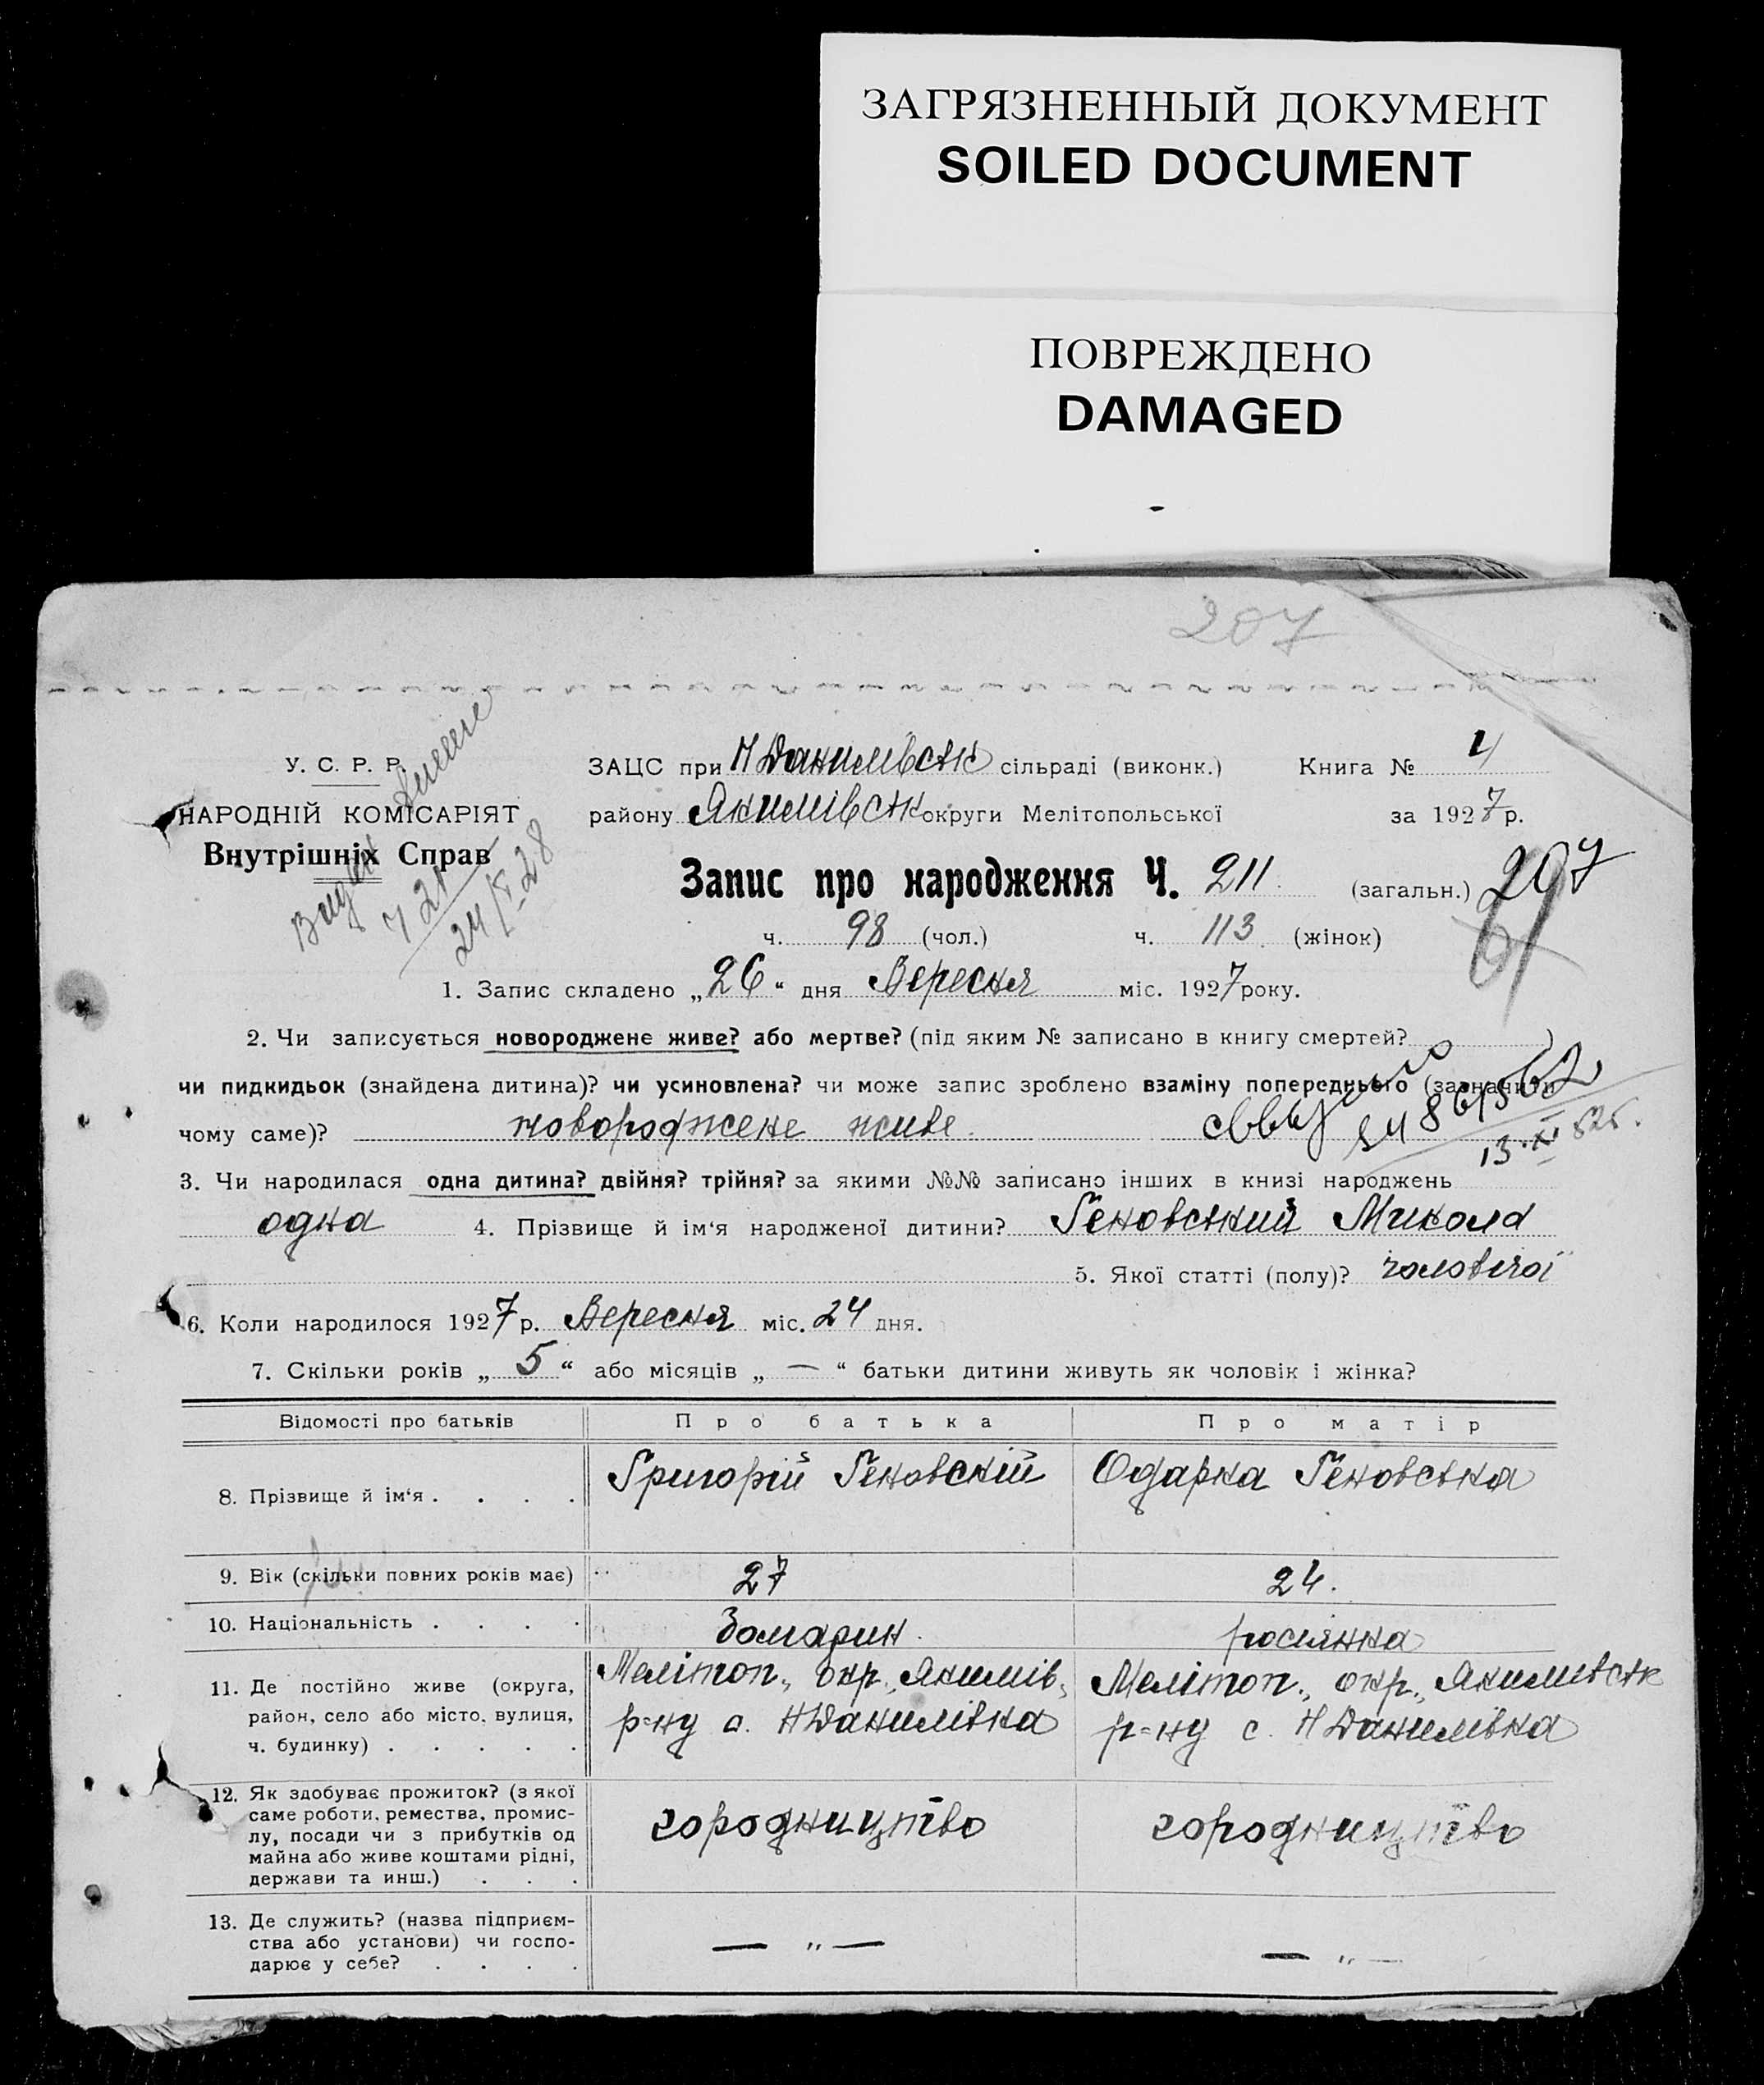 ЗАГРЯЗНЕННЫЙ ДОКУМЕНТ
SOILED DOCUMENT
ПОВРЕЖДЕНО
DAMAGED
207
У. С. Р. Р.
НАРОДНІЙ КОМІСАРІЯТ
Внутрішніх Справ
Ч 21
24/ 28
ЗАЦС при Н Данилівськ сільраді (виконк.) Книга № 4
району Якимівськ округи Мелітопольської за 1927 р.
Запис про народження Ч. 211 (загальн.) 207
ч. 98 (чол.) ч. 113 (жінок)
1. Запис складено „26“ дня Вересня міс. 1927 року.
2. Чи записується новороджене живе? або мертве? (під яким № записано в книгу смертей? )
чи пидкидьок (знайдена дитина)? чи усиновлена? чи може запис зроблено взаміну попереднього (зазначити
чому саме)? новороджене живе
3. Чи народилася одна дитина? двійня? трійня? за якими №№ записано інших в книзі народжень
одна 4. Прізвище й ім‘я народженої дитини? Геновський Микола
5. Якої статті (полу)? чоловічої
6. Коли народилося 1927 р. Вересня міс. 24 дня.
7. Скільки років „ 5 “ або місяців „ — “ батьки дитини живуть як чоловік і жінка?
Відомості про батьків Про батька Про матір
8. Прізвище й ім‘я . . . . Григорій Геновскій Одарка Геновська
9. Вік (скільки повних років має) 27 24.
10. Національність . . . . болгарин. росіянка
11. Де постійно живе (округа, Мелітоп., окр., Якимів, Мелітоп., окр., Якимівськ
район, село або місто, вулиця, р-ну с. Н Данилівка р=ну с. Н Данилівка
ч. будинку) . . . . .
12. Як здобуває прожиток? (з якої
саме роботи, ремества, промис-
лу, посади чи з прибутків од городництво городництво
майна або живе коштами рідні,
держави та инш.) . . .
13. Де служить? (назва підприєм-
ства або установи) чи госпо- — „ — — „ —
дарює у себе? . . . .